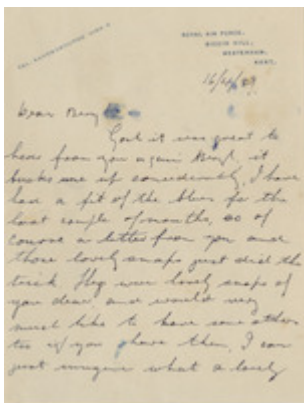 ROYAL AIR FORCE,
BIGGIN HILL,
WESTERHAM,
KENT.
Dear
God it was great to
hear from you again, it
bucks me up considerably, I have
had a fit of the blues for the
last couple of months, so of
course a letter from you and
those lovely snaps just did the
trick. They were lovely snaps of
you dear, and would very
much like to have some others
too if you have them, I can
just imagine what a lovely